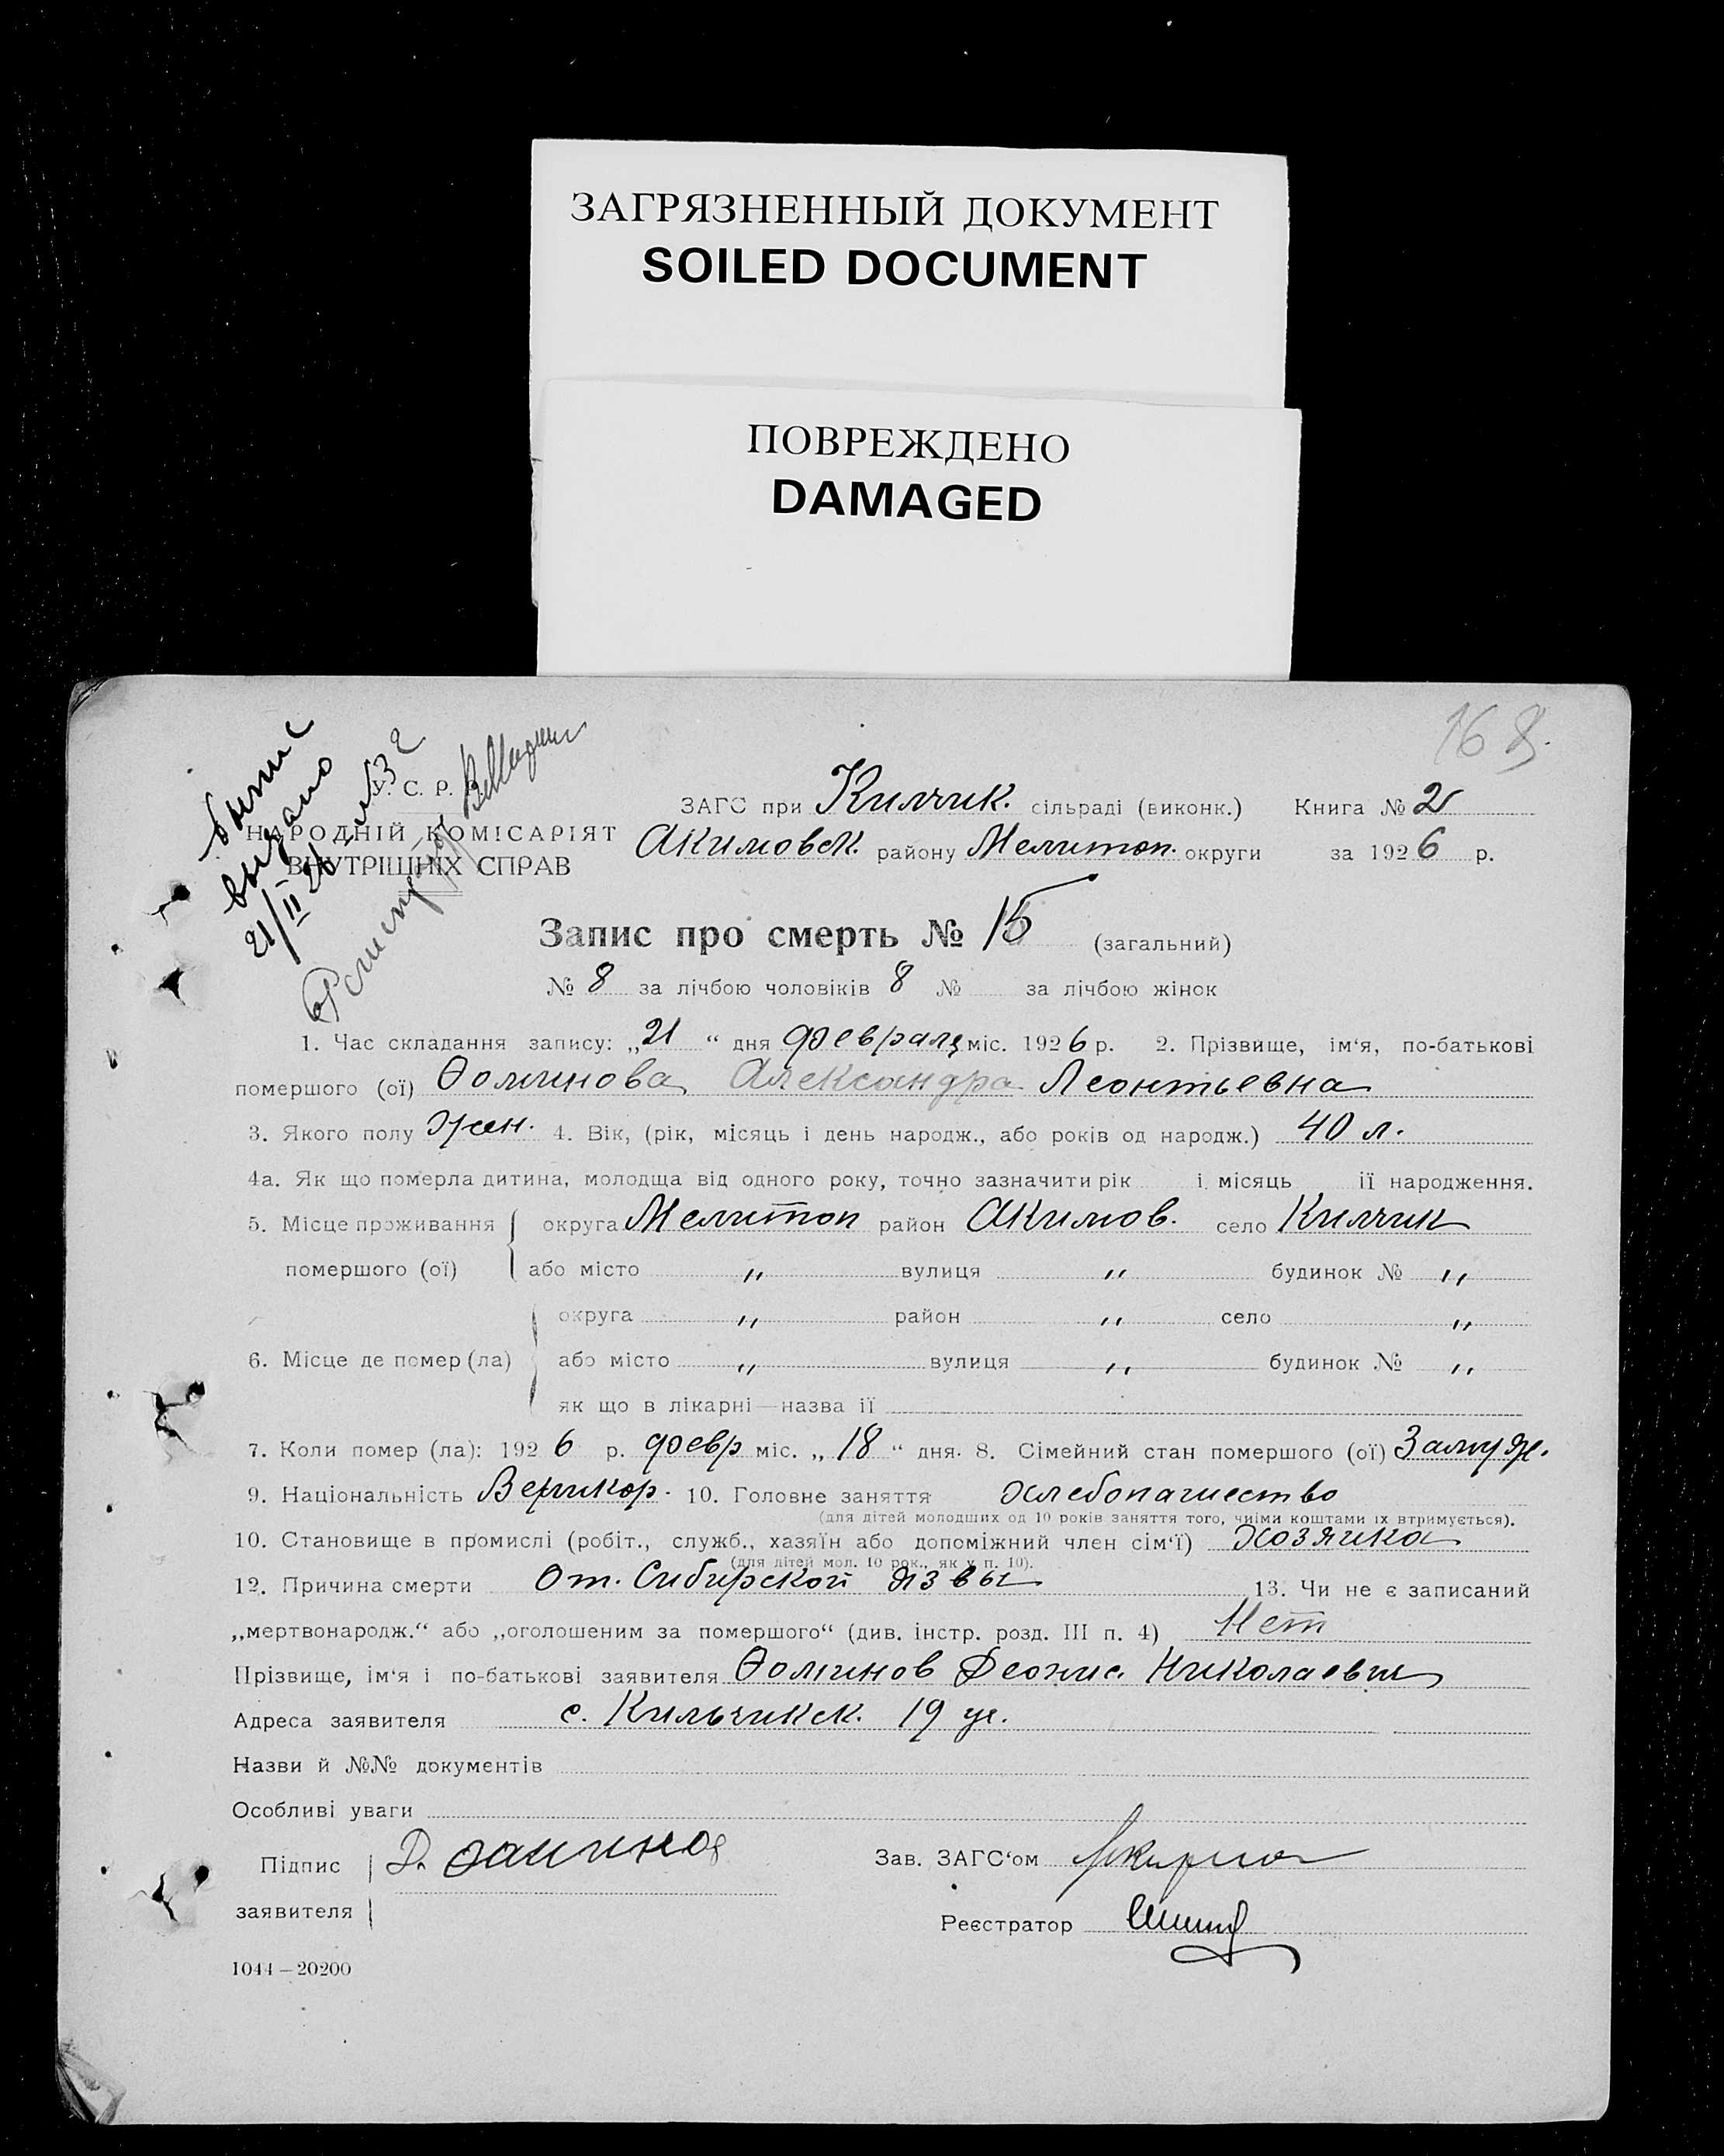 ЗАГРЯЗНЕННЫЙ ДОКУМЕНТ
SOILED DOCUMENT
ПОВРЕЖДЕНО
DAMAGED
168
выпис
выдано
21/II 26
У. С. Р. Р.
НАРОДНІЙ КОМІСАРІЯТ
ВНУТРІШНІХ СПРАВ
ЗАГС при Килчик. сільраді (виконк.) Книга № 2
Акимовск. району Мелитоп. округи за 1926 р.
Запис про смерть № 15 (загальний)
№ 8 за лічбою чоловіків 8 № за лічбою жінок
1. Час складання запису: „21“ дня февраля міс. 1926 р. 2. Прізвище, ім‘я, по-батькові
помершого (ої) Ѳоминова Александра Леонтьевна
3. Якого полу Жен. 4. Вік, (рік, місяць і день народж., або років од народж.) 40 л.
4а. Як що померла дитина, молодща від одного року, точно зазначити рік і місяць її народження.
5. Місце проживання округа Мелитоп район Акимов. село Килчик
помершого (ої) або місто „ вулиця „ будинок № „
округа „ район „ село „
6. Місце де помер (ла) або місто „ вулиця „ будинок № „
як що в лікарні—назва її
7. Коли помер (ла): 1926 р. февр міс. „18“ дня. 8. Сімейний стан помершого (ої) Замуж.
9. Національність Великор. 10. Головне заняття хлебопашество
(для дітей молодших од 10 років заняття того, чиїми коштами їх втримується).
10. Становище в промислі (робіт., служб., хазяїн або допоміжний член сім‘ї) Хозяика
(для дітей мол. 10 рок., як у п. 10).
12. Причина смерти От. Сибирской язвы 13. Чи не є записаний
„мертвонародж.“ або „оголошеним за помершого“ (див. інстр. розд. III п. 4) Нет
Прізвище, ім‘я і по-батькові заявителя Ѳоминов Деонис. Николаевич
Адреса заявителя с. Кильчикск. 19 уч.
Назви й №№ документів
Особливі уваги
Підпис Д. Ѳаминов Зав. ЗАГС‘ом
заявителя Реєстратор
1044—20200